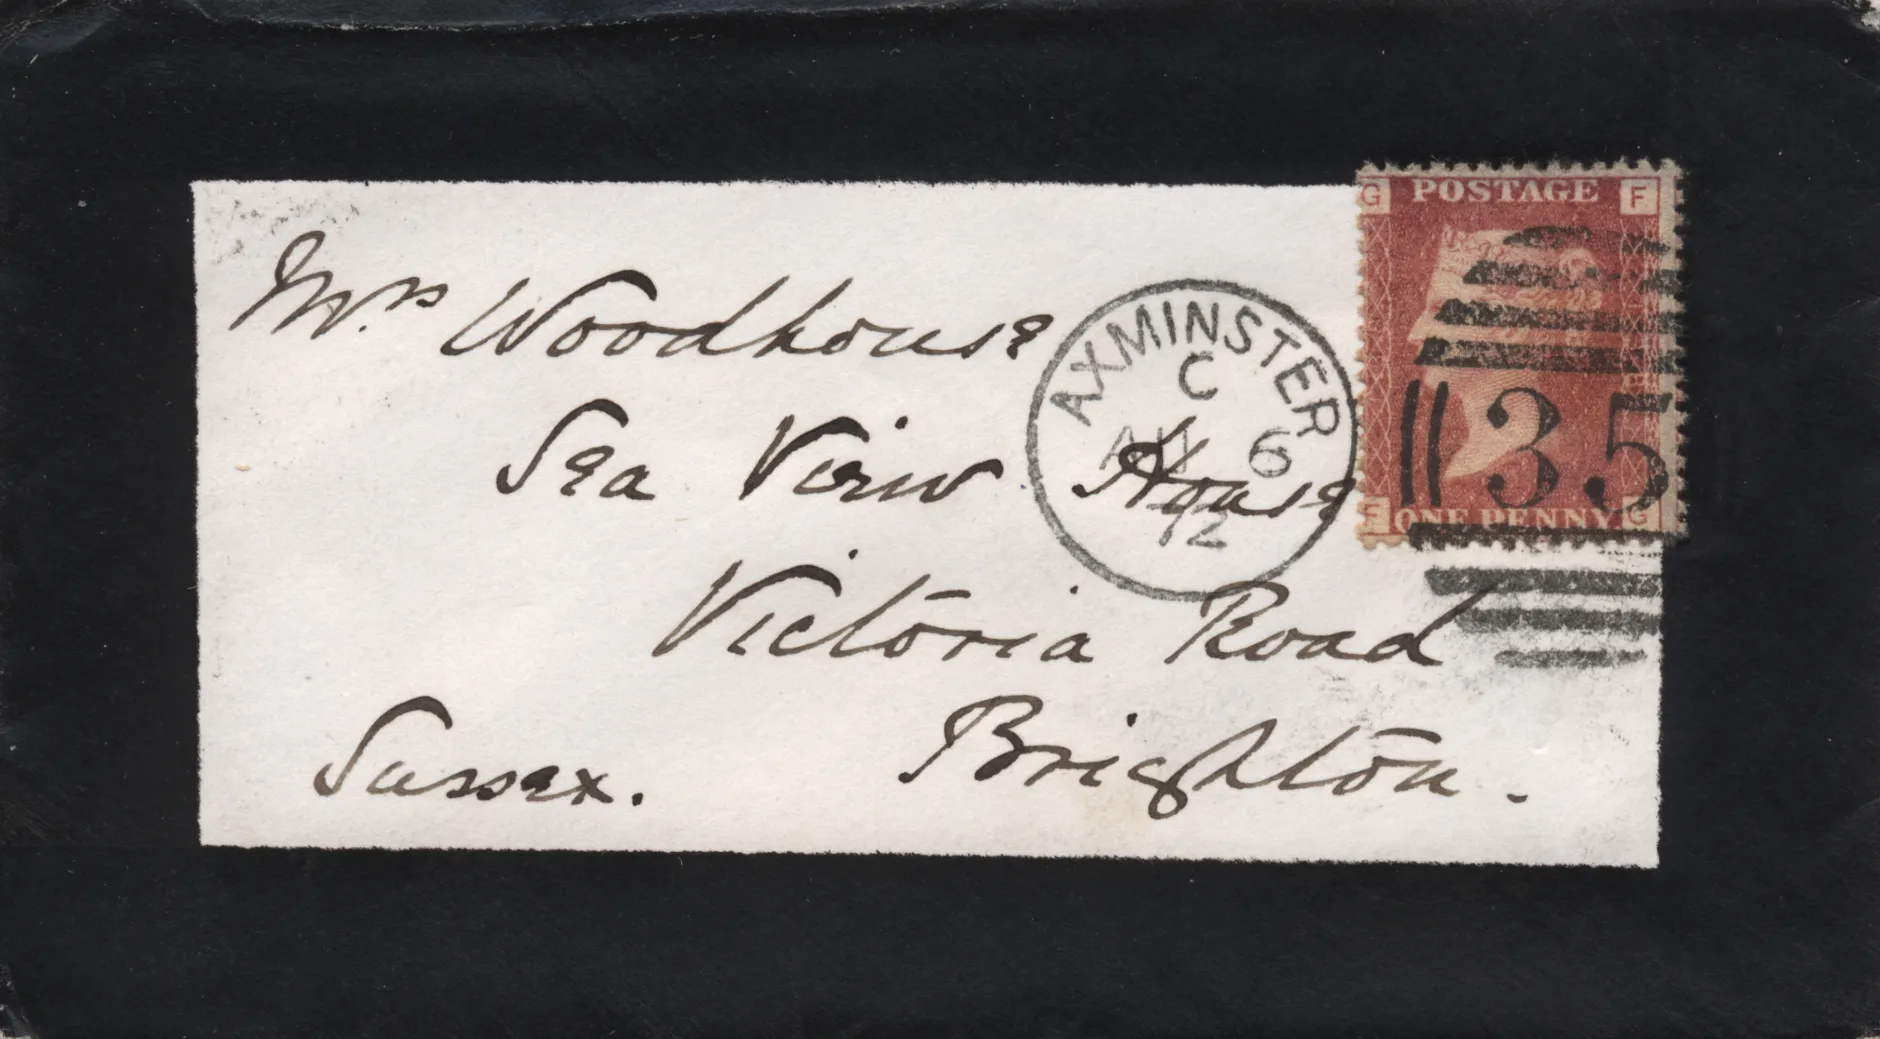 Mrs Woodhouse
Sea View House
Victoria Road
Brighton.
Sussex.
AXMINSTER
C
AU 6
72
G POSTAGE F
35
F ONE PENNY G